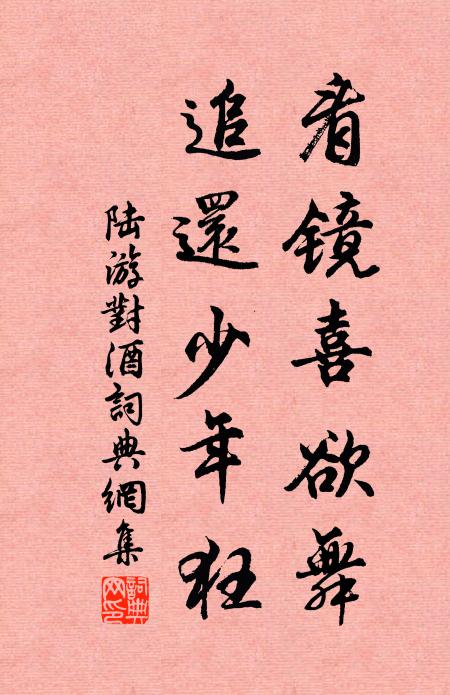 看镜喜欲舞
追還少年狂
陆游對酒詞典網集
詞典网印